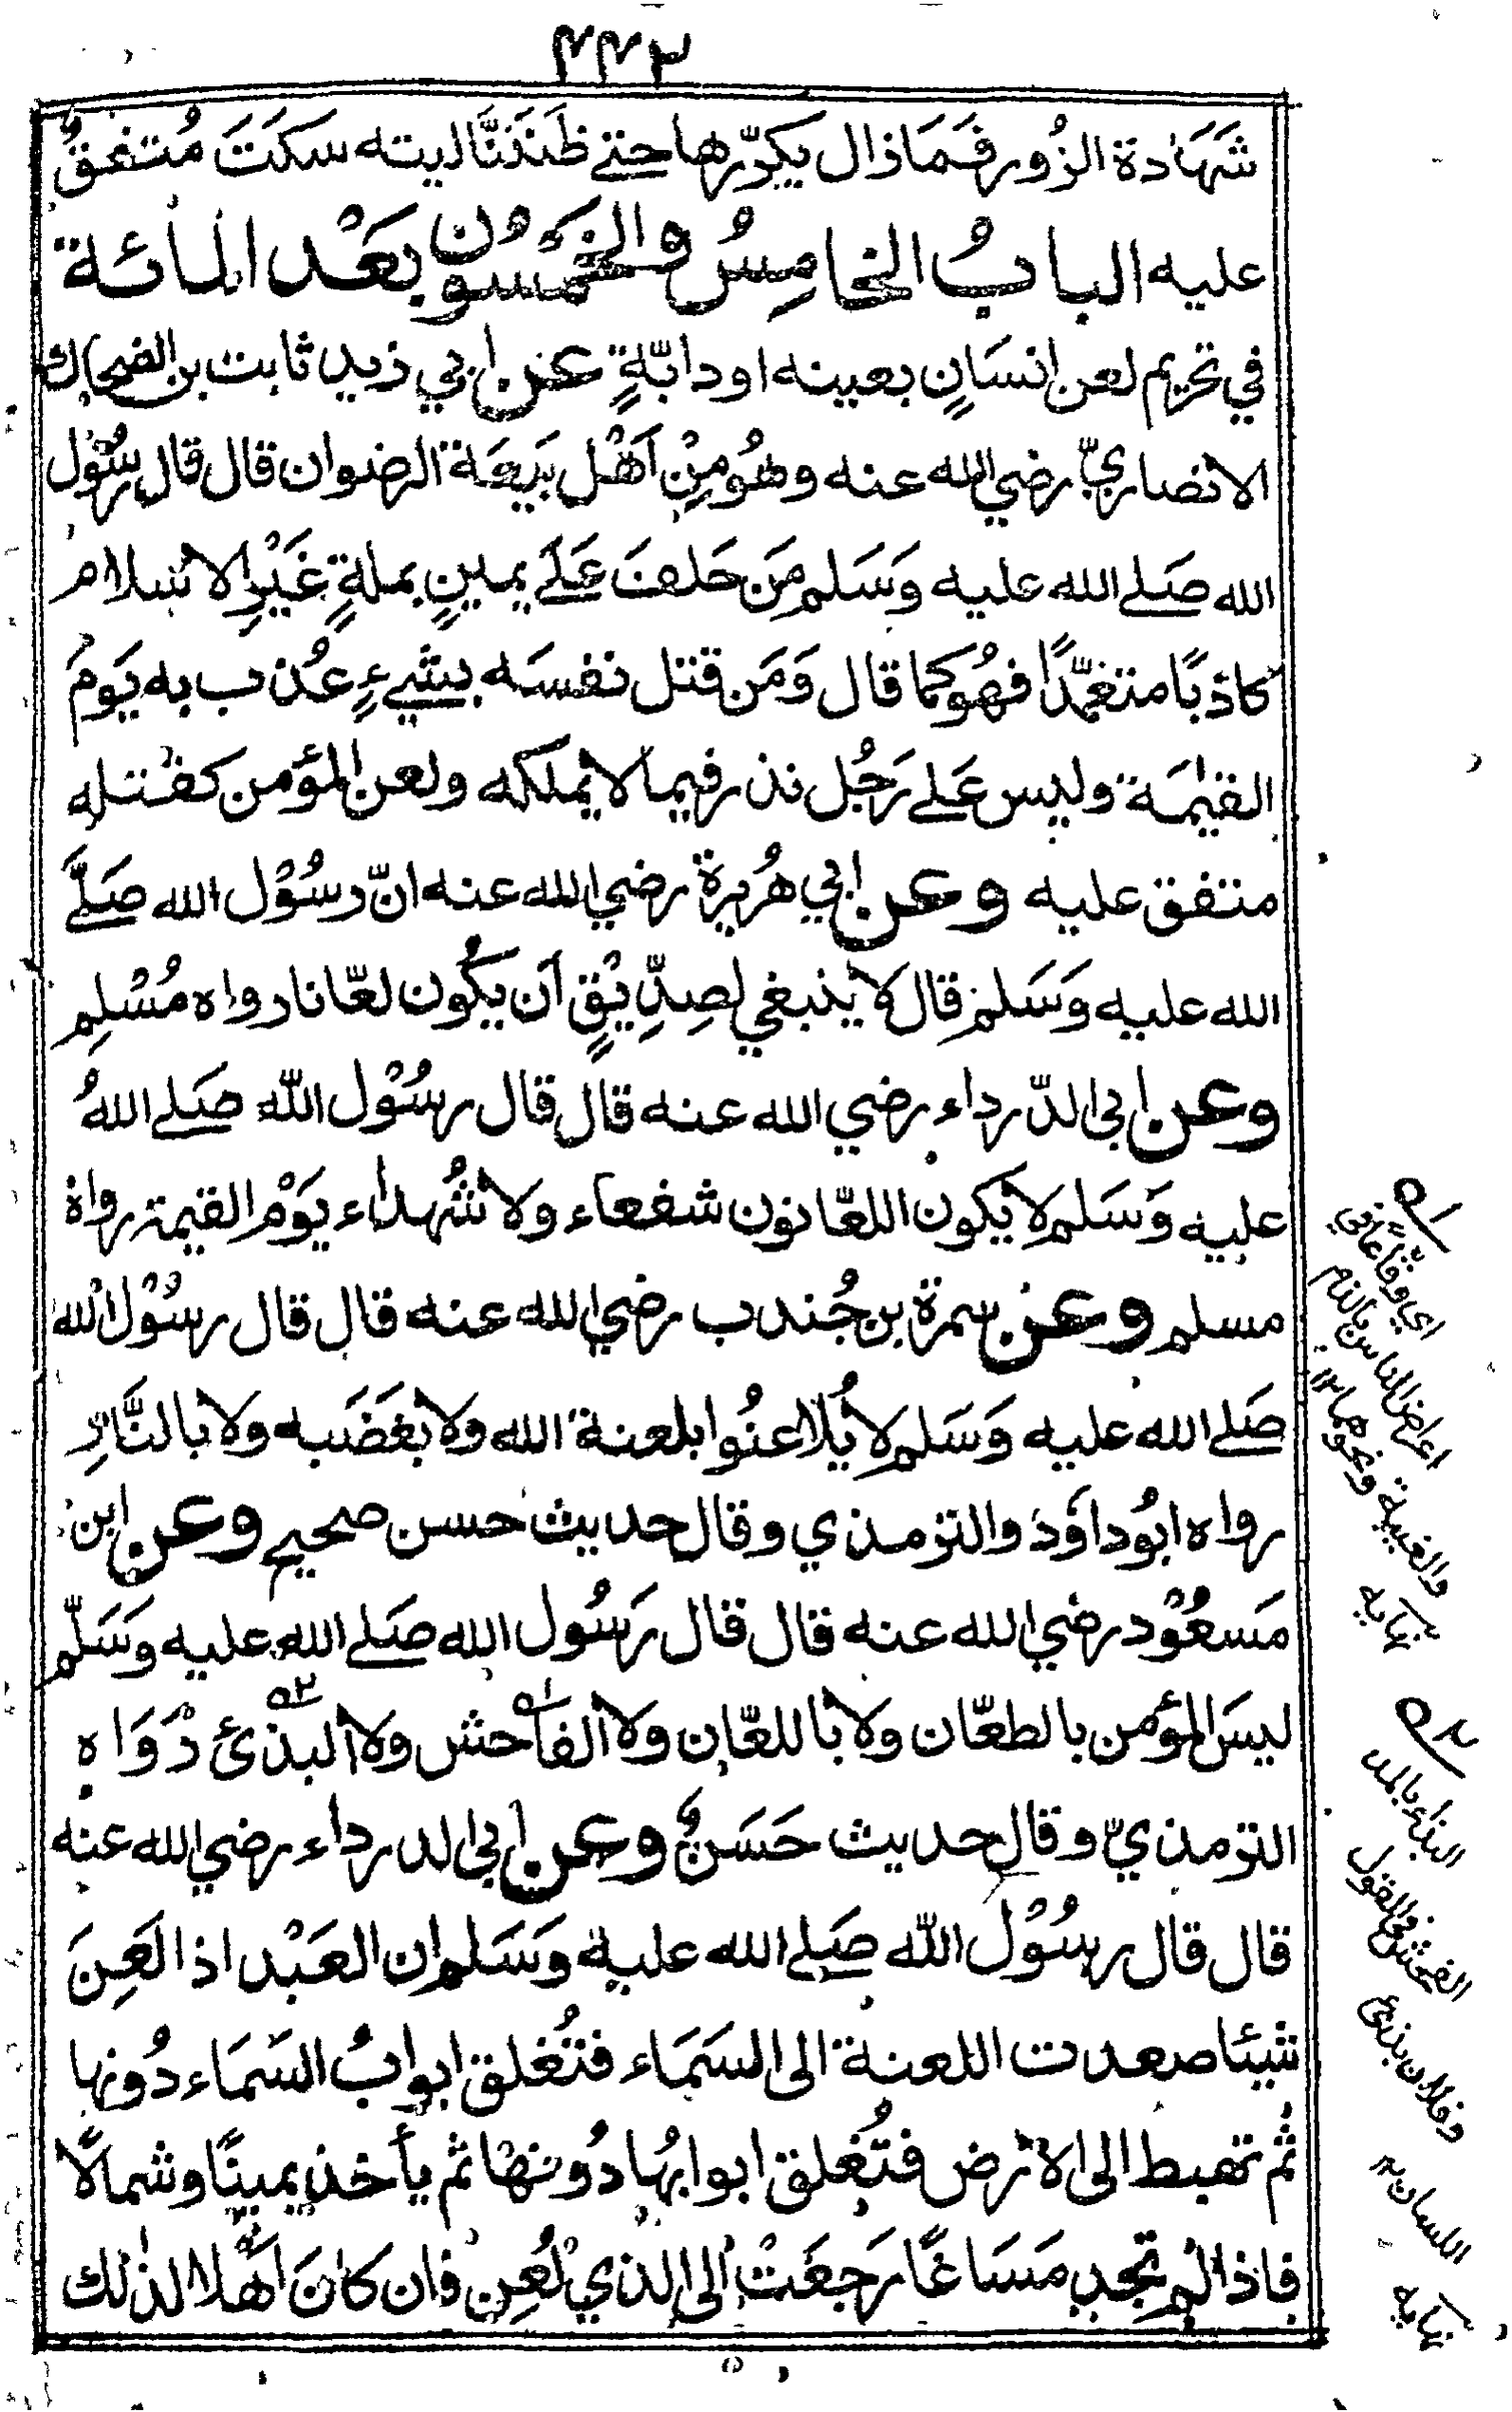 ٤٤٣
شَهَادة الزُور فَمَا زال يكرّرها حتے ظَنَنَّا ليته سكَتَ مُتفقٌ
عليه البابُ الخامِسُ والخمْسُون بَعْد المائة
في تحريم لعن انسَانٍ بعينه او دابّةٍ عن ابي زيد ثابت بن الضحاك
الانصاريّ رضي الله عنه وهُو مِنْ اَهْل بيعة الرضوان قال قال رسُوْل
الله صَلے الله عليه وَسَلم مَن حَلفَ عَلے يمينٍ بملةٍ غَيْرِ الاسلام
كاذبًا متعمّدًا فهُو كما قال وَمَن قتل نفسَه بشَيءٍ عُذب به يَومَ
القيٰمَة وليس عَلے رَجُل نذر فيما لا يملكه ولعن المؤمن كقتله
متفق عليه وعن ابي هُريرة رضي الله عنه انّ رسُوْل الله صَلَّے
الله عليه وَسَلم قال لا ينبغي لصِدِّيْقٍ اَن يكُون لعّانا رواه مُسْلِم
وعن ابى الدّرداء رضي الله عنه قال قال رسُوْل اللّه صَلے اللهُ
عليه وَسَلم لا يكون اللعّانون شفعاء ولا شُهداء يَوْم القيمة رواه
مسلم وعن سمرة بن جُندب رضي الله عنه قال قال رسُوْل الله
صَلے الله عليه وَسَلم لا يُلاعنُوا بلعنة الله ولا بغَضَبه ولا بالنَّارِ
رواه ابُو داوٗد والترمذي وقال حديث حسن صحيح وعن ابن
مَسعُوْد رضي الله عنه قال قال رَسُول الله صَلے الله عليه وَسَلّم
ليسَ المؤمن بالطعّان ولا باللعّان ولا الفاحش ولا البذئ رَوَاه
الترمذيّ وقال حديث حَسَنٌ وعن ابى الدرداء رضي الله عنه
قال قال رسُوْل اللّه صَلے الله عليه وَسَلم ان العَبْد اذا لَعِنَ
شيئا صعدت اللعنة الى السَمَاء فتُغلق ابوابُ السَمَاء دُونها
ثُم تهبط الى الارْض فتُغلق ابوابُها دُونها ثم يأخذ يمينًا وشمالًا
فاذا لم تجد مَسَاغًا رَجعَتْ الى الذيْ لُعِن فان كانَ اَهْلا لذٰلك
٥١
اي وقّاعًا في
اعراض الناس بالذم
والغيبة ونحوهما ١٢
نهايه
٥٢
البذاء بالمد
الفحش في القول
وفلان بذئ
اللسان ١٢
نهايه